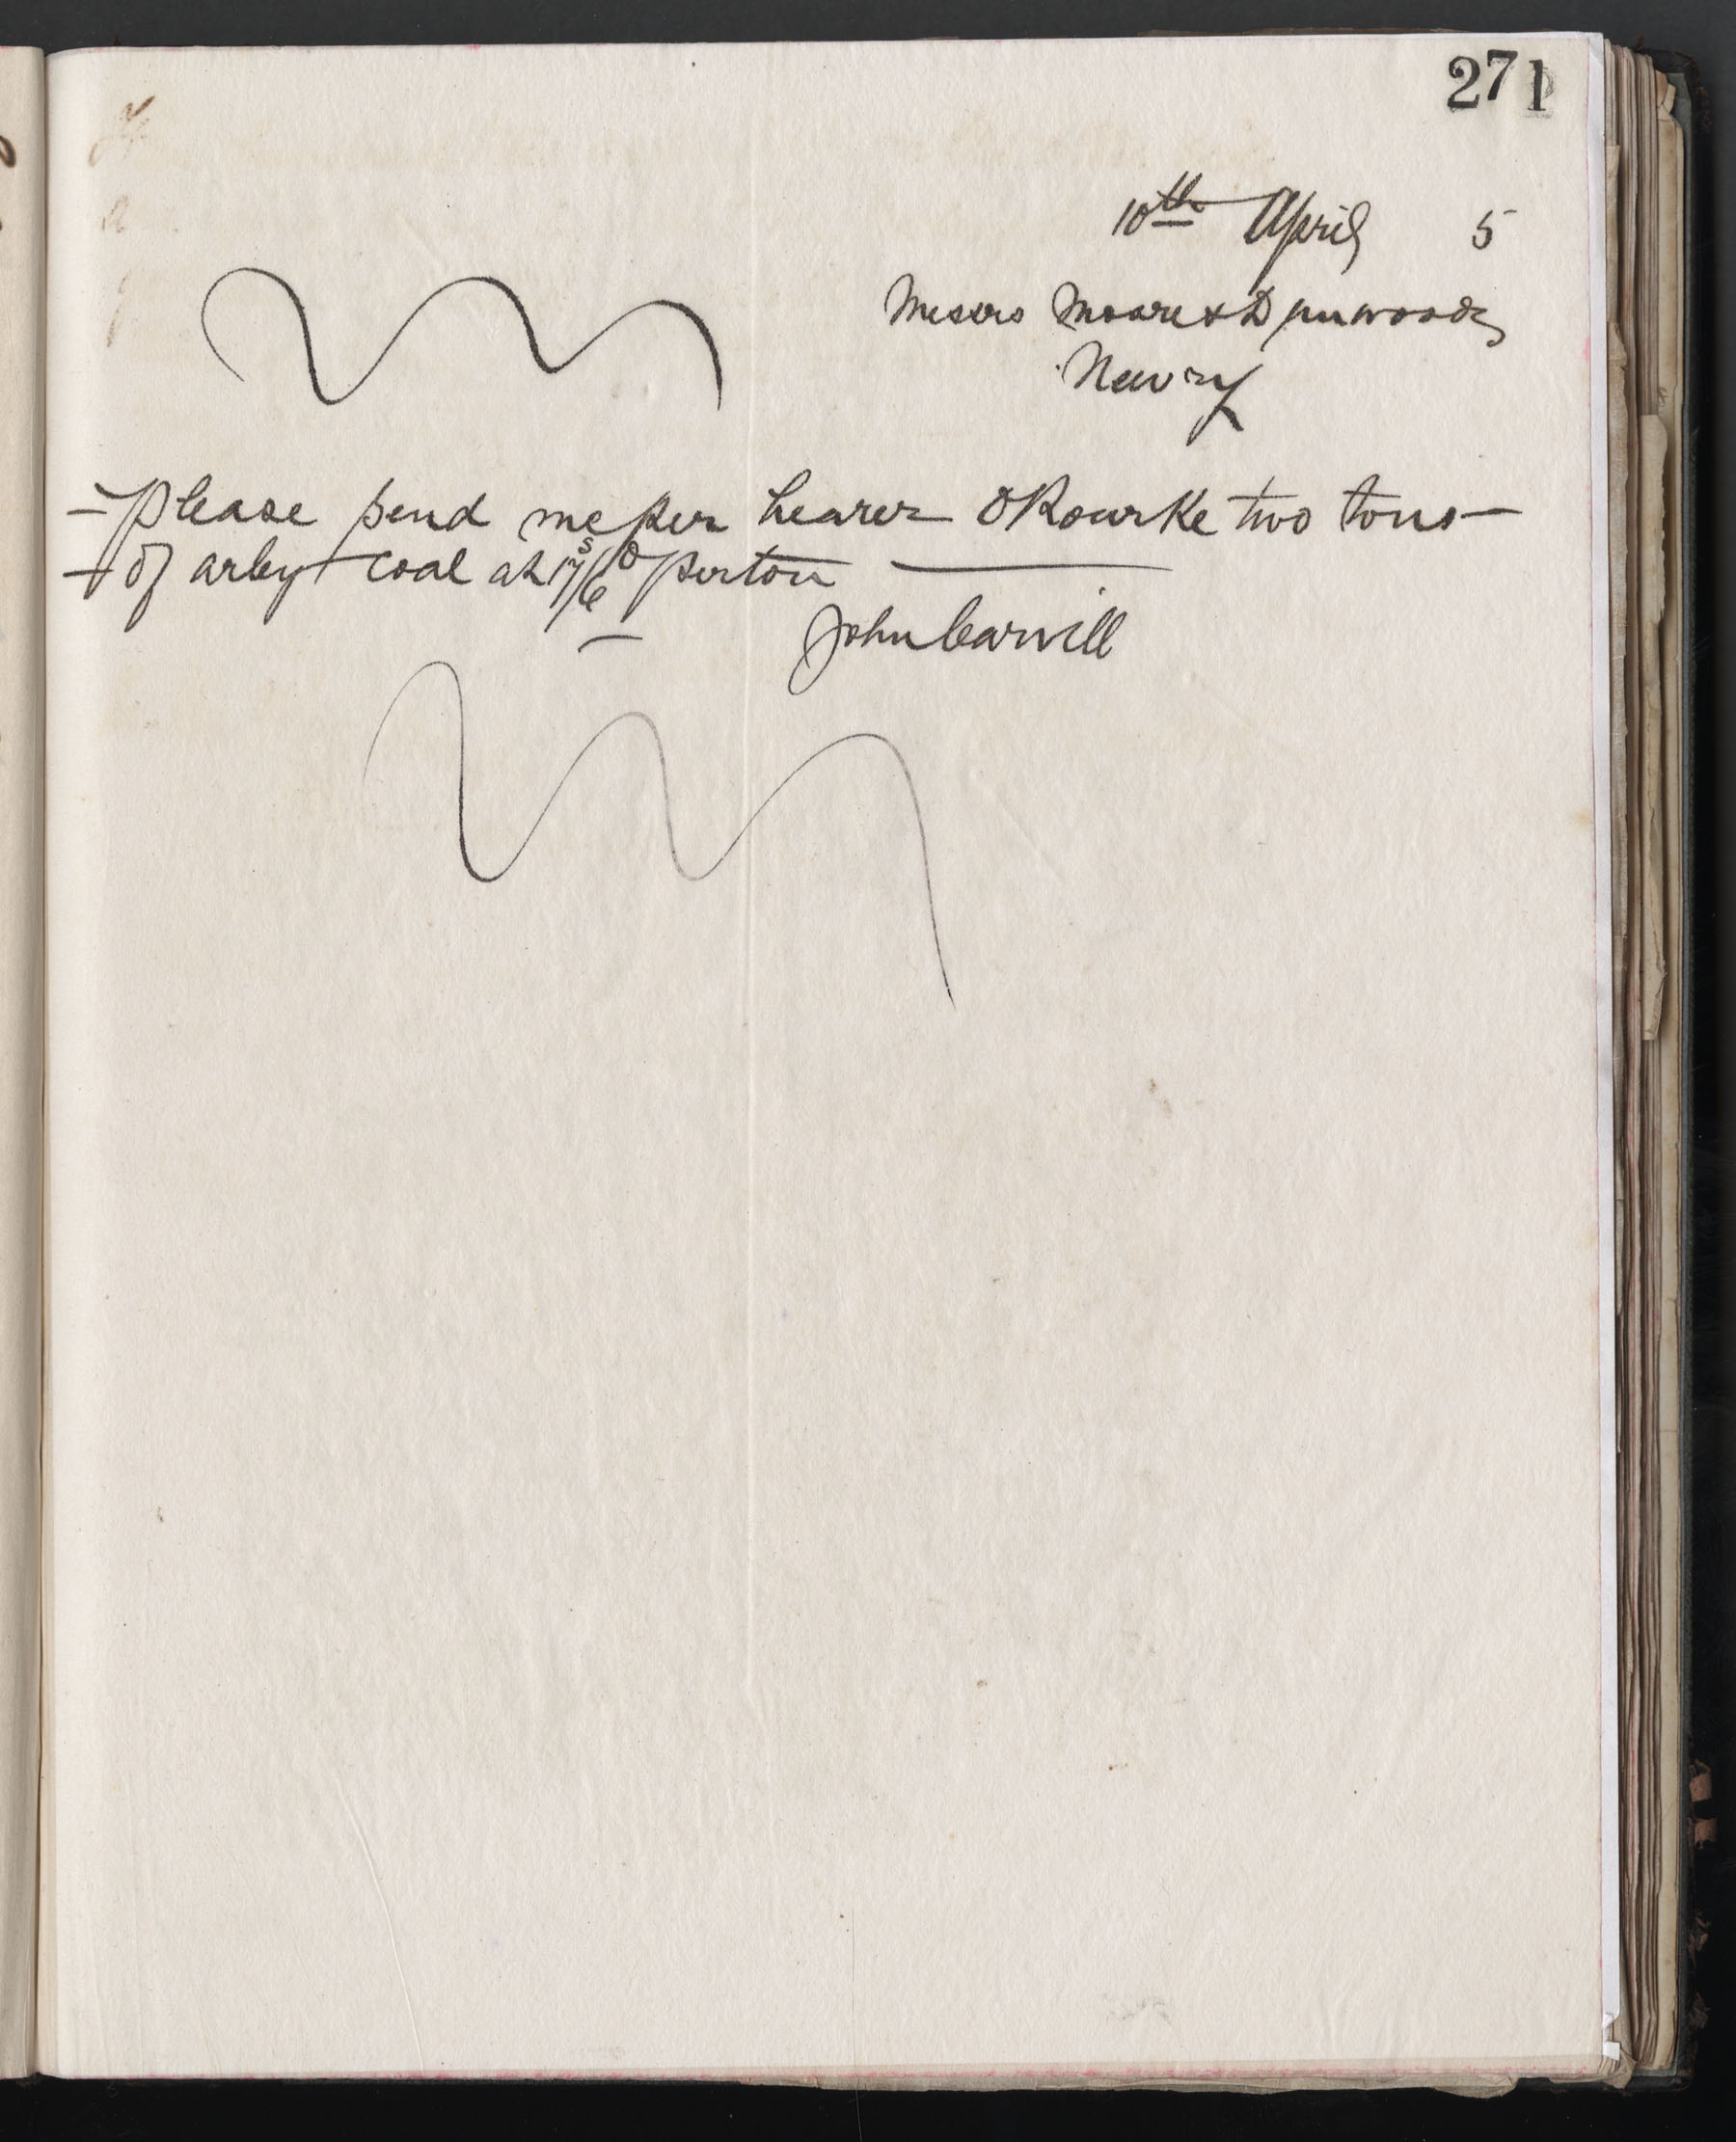 271
10th April 5
Messrs Moore & Dinwoody
Newry
Please send me per bearer O Rourke two tons
of arley coal at 17s/6d per ton
John Carvill